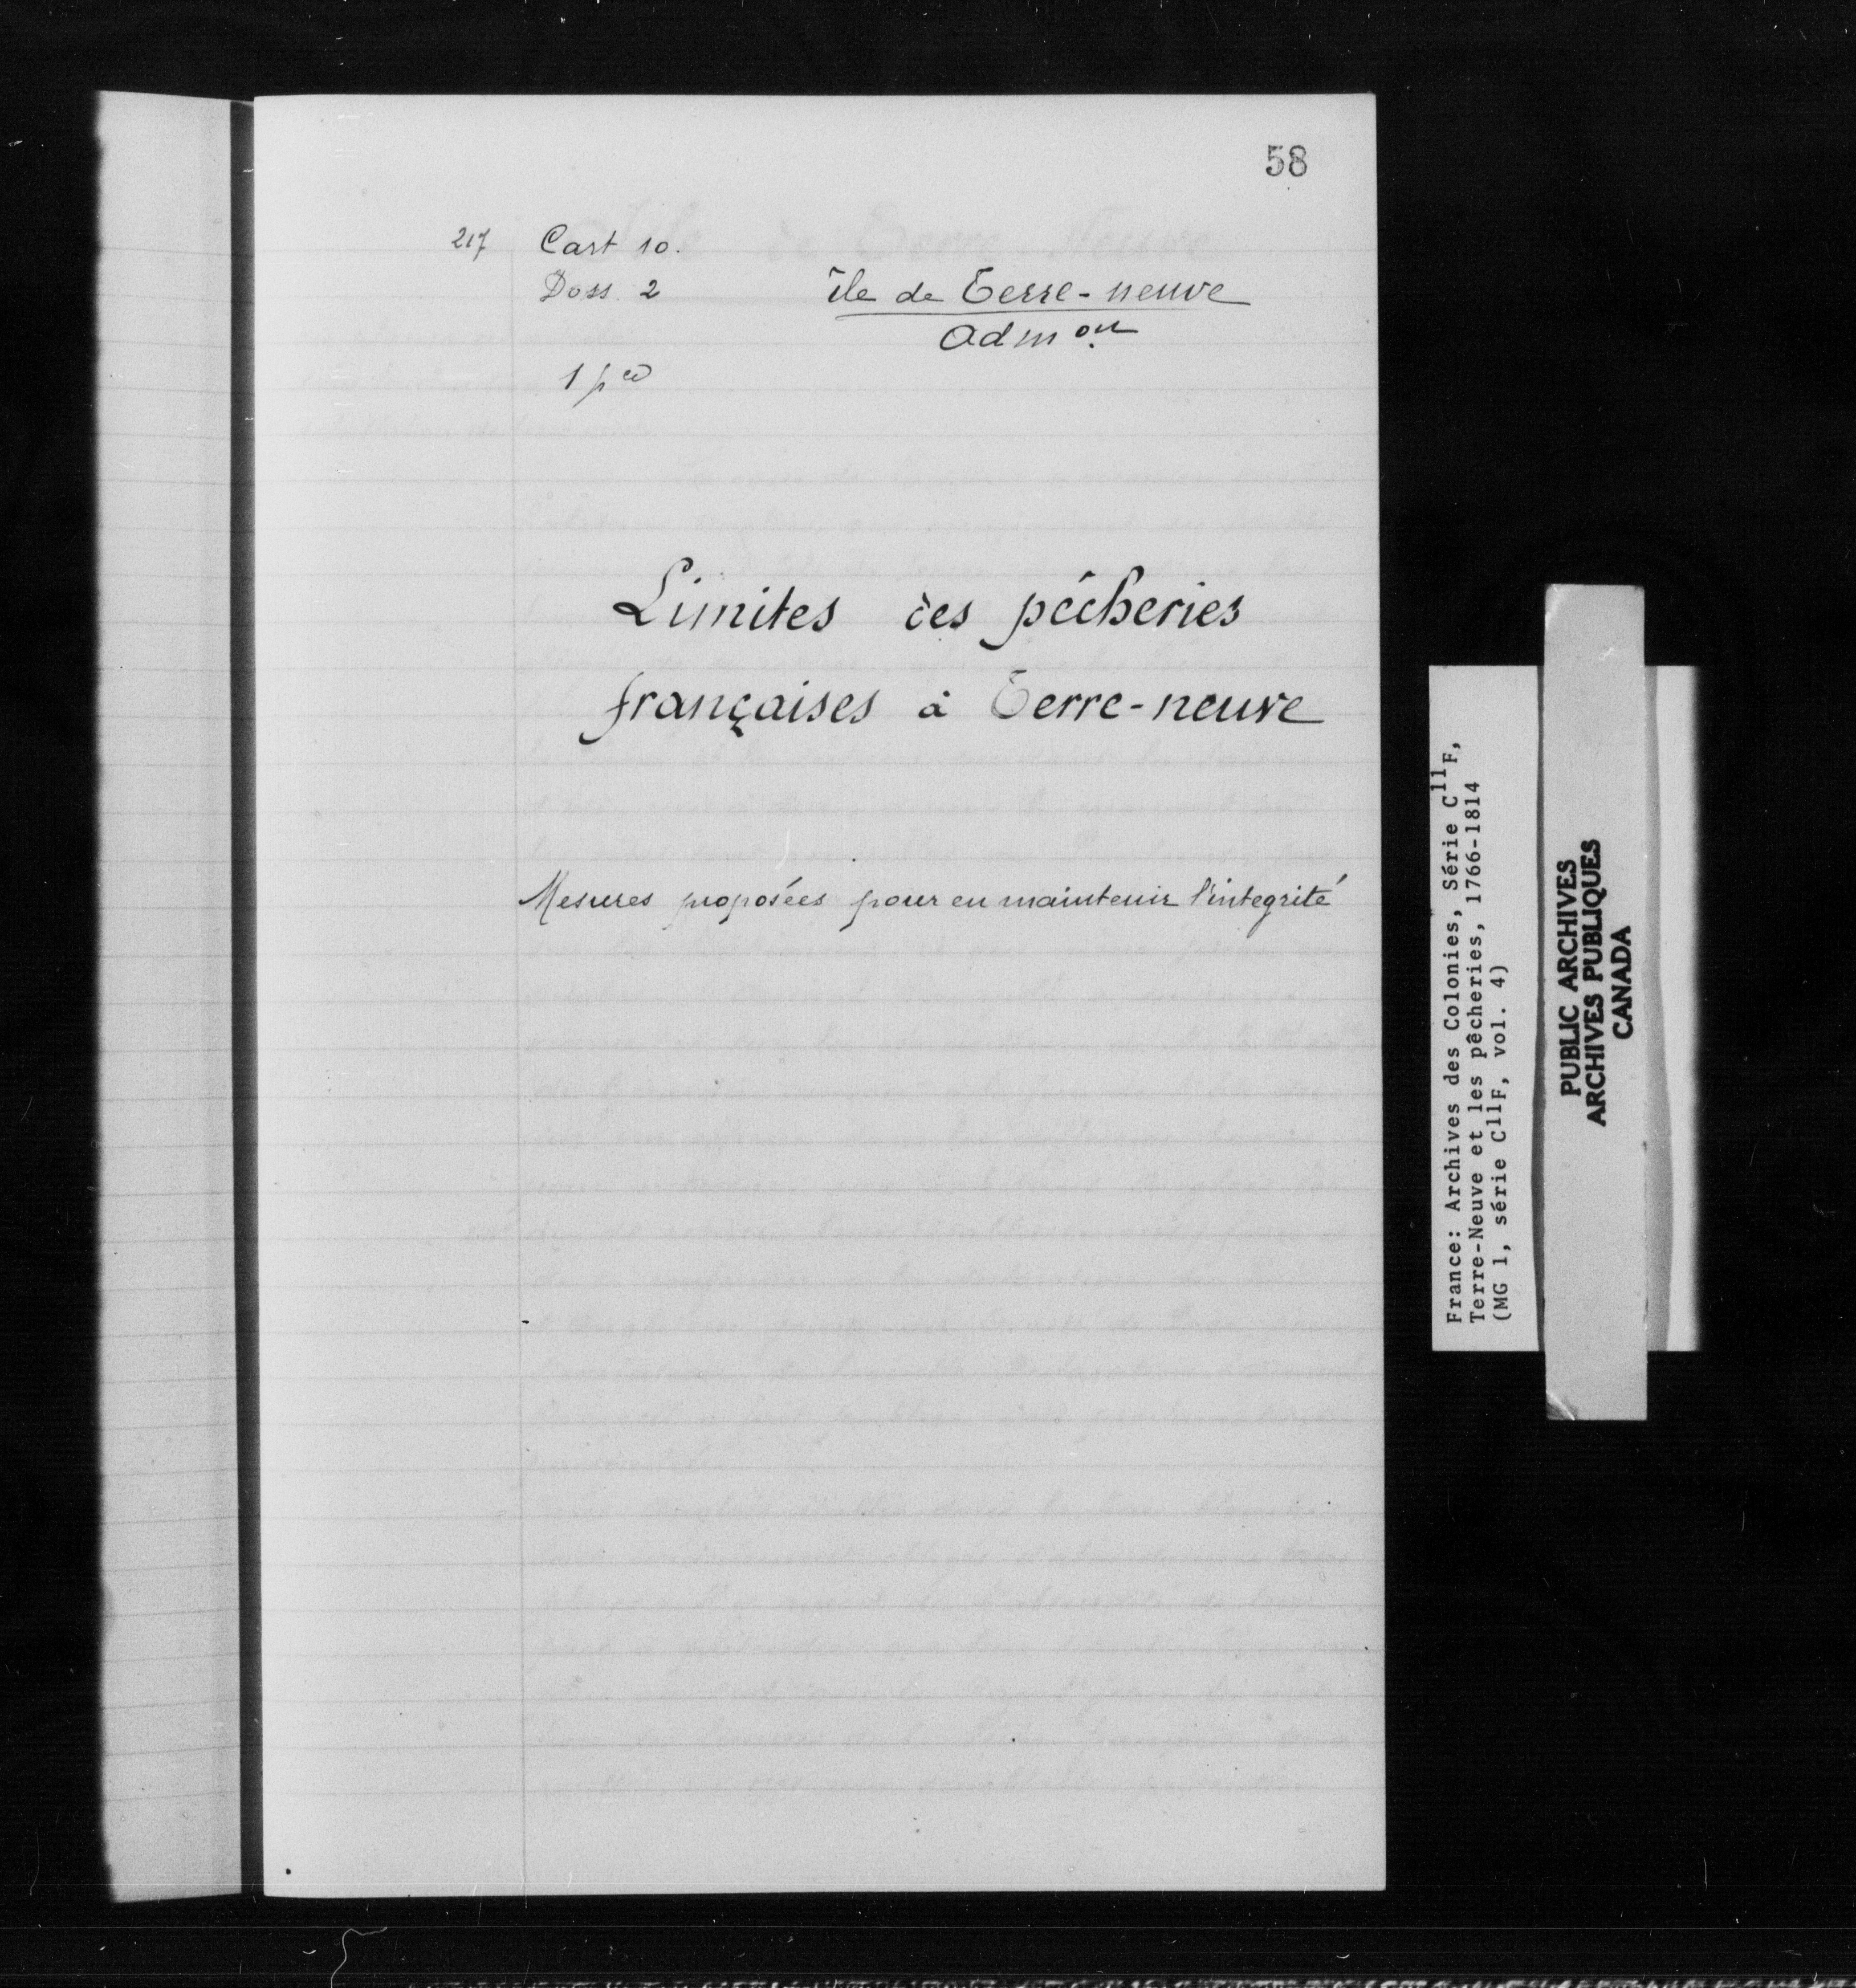 58
217 Cart 10.
Doss. 2
île de Terre-neuve
Adm on
1 pce
Limites des pêcheries
françaises à Terre-neuve
Mesures proposées pour en maintenir l'integrité
France: Archives des Colonies, Série C11F,
Terre-Neuve et les pêcheries, 1766-1814
(MG 1, série C11F, vol. 4)
PUBLIC ARCHIVES
ARCHIVES PUBLIQUES
CANADA